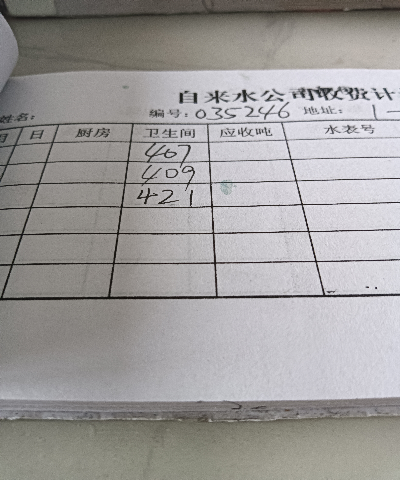 自来水公司收费计
姓名: 编号: 035246 地址: 1-
月 日 厨房 卫生间 应收吨 水表号
407
409
421